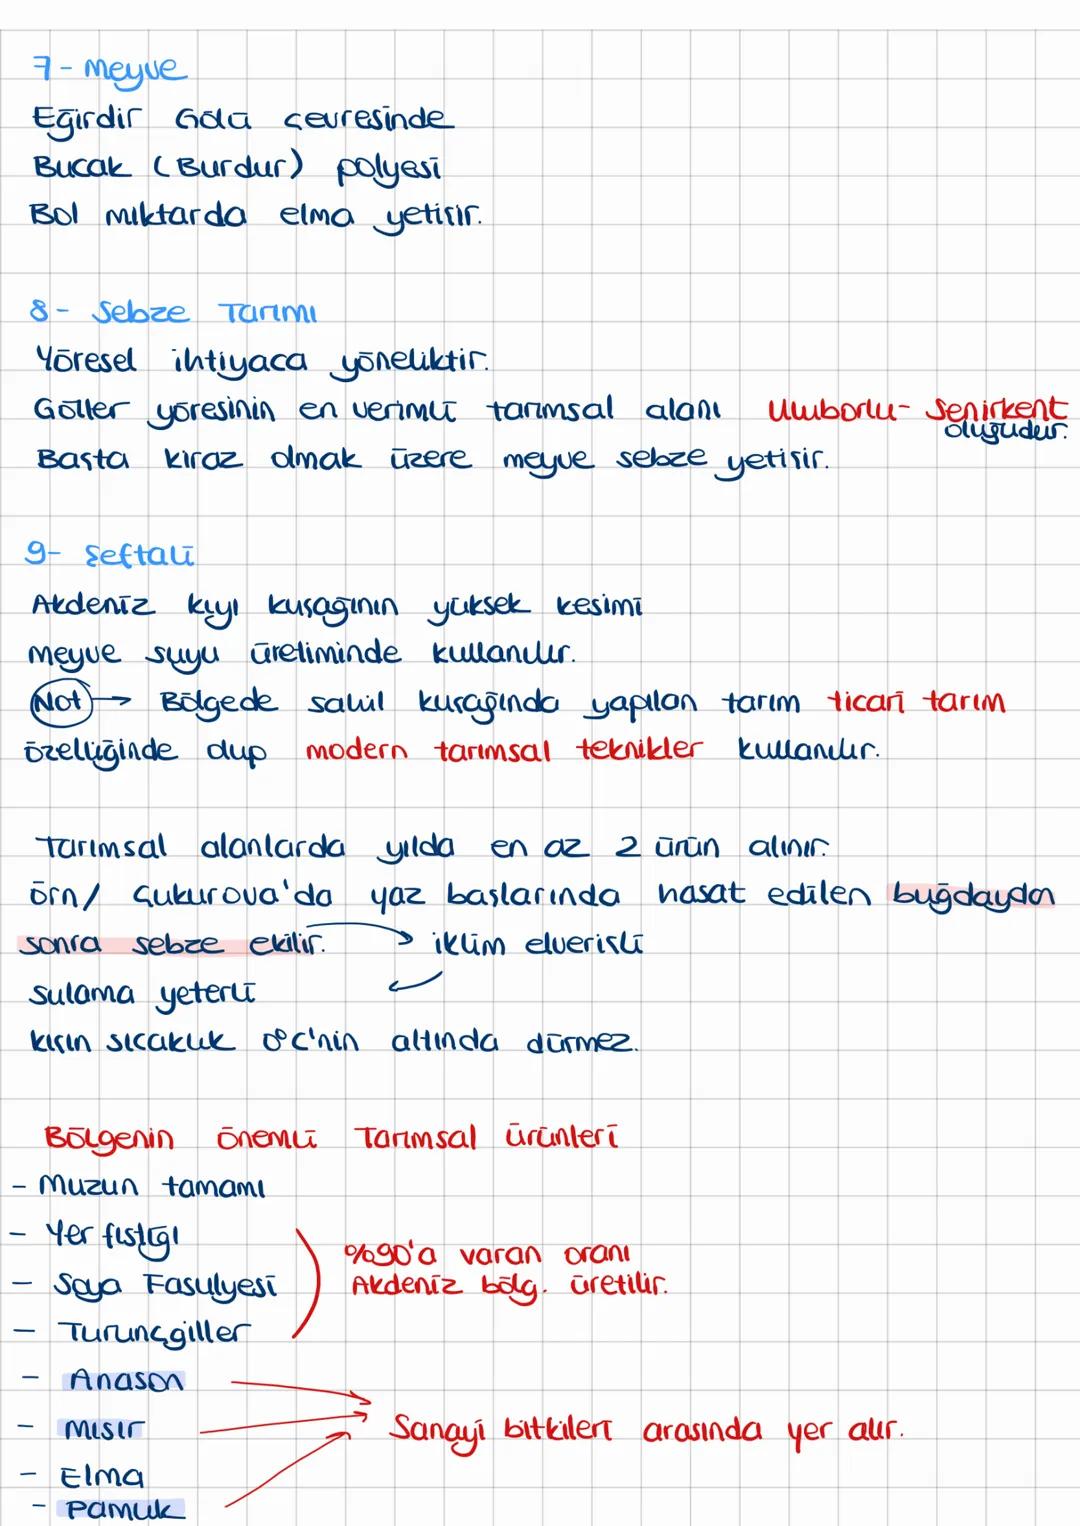 7- Meyve
Eğirdir Gölü çevresinde
Bucak (Burdur) polyesi
Bol miktarda elma yetişir.
8- Sebze Tarımı
Yöresel ihtiyaca yöneliktir.
Göller yöresinin en verimli tarımsal alanı Uluborlu- Senirkent
oluğudur.
Başta kiraz olmak üzere meyve sebze yetişir.
9- Şeftali
Akdeniz kıyı kuşağının yüksek kesimi
meyve suyu üretiminde kullanılır.
Not → Bölgede sahil kuşağında yapılan tarım ticari tarım
özelliğinde olup modern tarımsal teknikler kullanılır.
Tarımsal alanlarda yılda en az 2 ürün alınır.
örn/ Çukurova'da yaz başlarında hasat edilen buğdaydan
sonra sebze ekilir. → iklim elverişli
sulama yeterli ←
kışın sıcaklık 0°C'nin altında durmez.
Bölgenin Önemli Tarımsal Ürünleri
- Muzun tamamı
- Yer fıstığı
- Soya Fasulyesi
- Turunçgiller
%90'a varan oranı
Akdeniz bölg. üretilir.
- Anason
- Mısır
- Elma
- Pamuk
Sanayi bitkileri arasında yer alır.